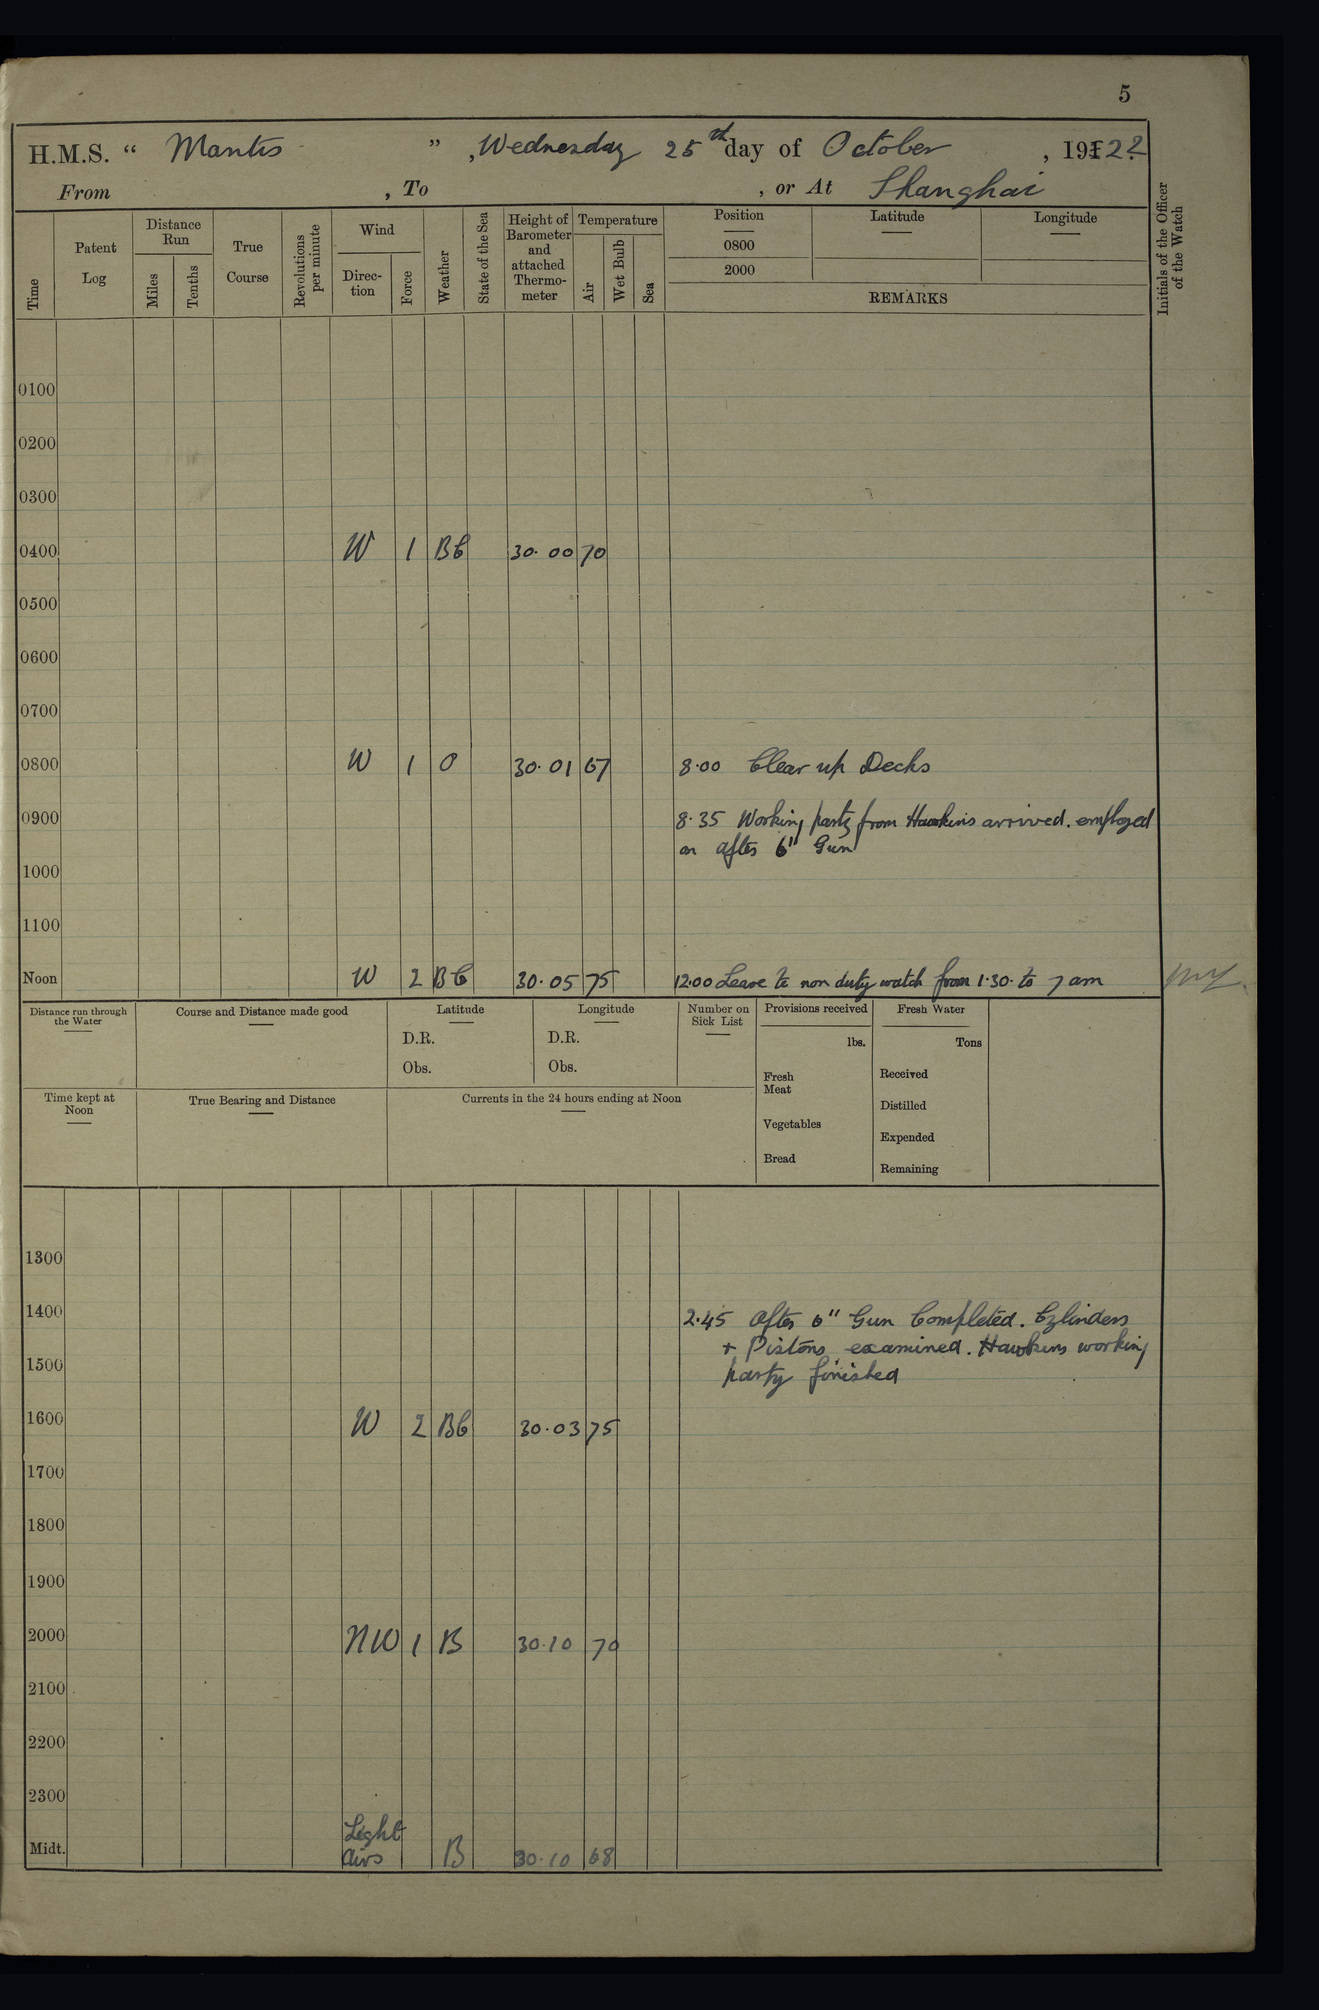 5
H.M.S. “ Mantis ” , Wednesday 25th day of October , 1922
From , To , or At Shanghai
Time
Patent Log
Distance Run
Miles
Tenths
True Course
Revolutions per minute
Wind
Direc-tion
Force
Weather
State of the Sea
Height of Barometer and attached Thermo-meter
Temperature
Air
Wet Bulb
Sea
Position
0800
2000
Latitude
Longitude
REMARKS
Initials of the Officer of the Watch
0100
0200
0300
0400 W 1 BC 30.00 70
0500
0600
0700
0800 W 1 O 30.01 67 8.00 Clear up Decks
0900 8.35 Working party from Hawkins arrived. employed
on after 6" Gun
1000
1100
Noon W 2 BC 30.05 75 12.00 Leave to non duty watch from 1.30. to 7 am
Distance run through the Water
Course and Distance made good
Latitude
D.R.
Obs.
Longitude
D.R.
Obs.
Number on Sick List
Provisions received
lbs.
Fresh Meat
Vegetables
Bread
Fresh Water
Tons
Received
Distilled
Expended
Remaining
Time kept at Noon
True Bearing and Distance
Currents in the 24 hours ending at Noon
1300
1400 2.45 After 6" Gun Completed. Cylinders
+ Pistons examined. Hawkins working
1500 party finished
1600 W 2 BC 30.03 75
1700
1800
1900
2000 NW 1 B 30.10 70
2100
2200
2300
Light
Midt. airs B 30.10 68